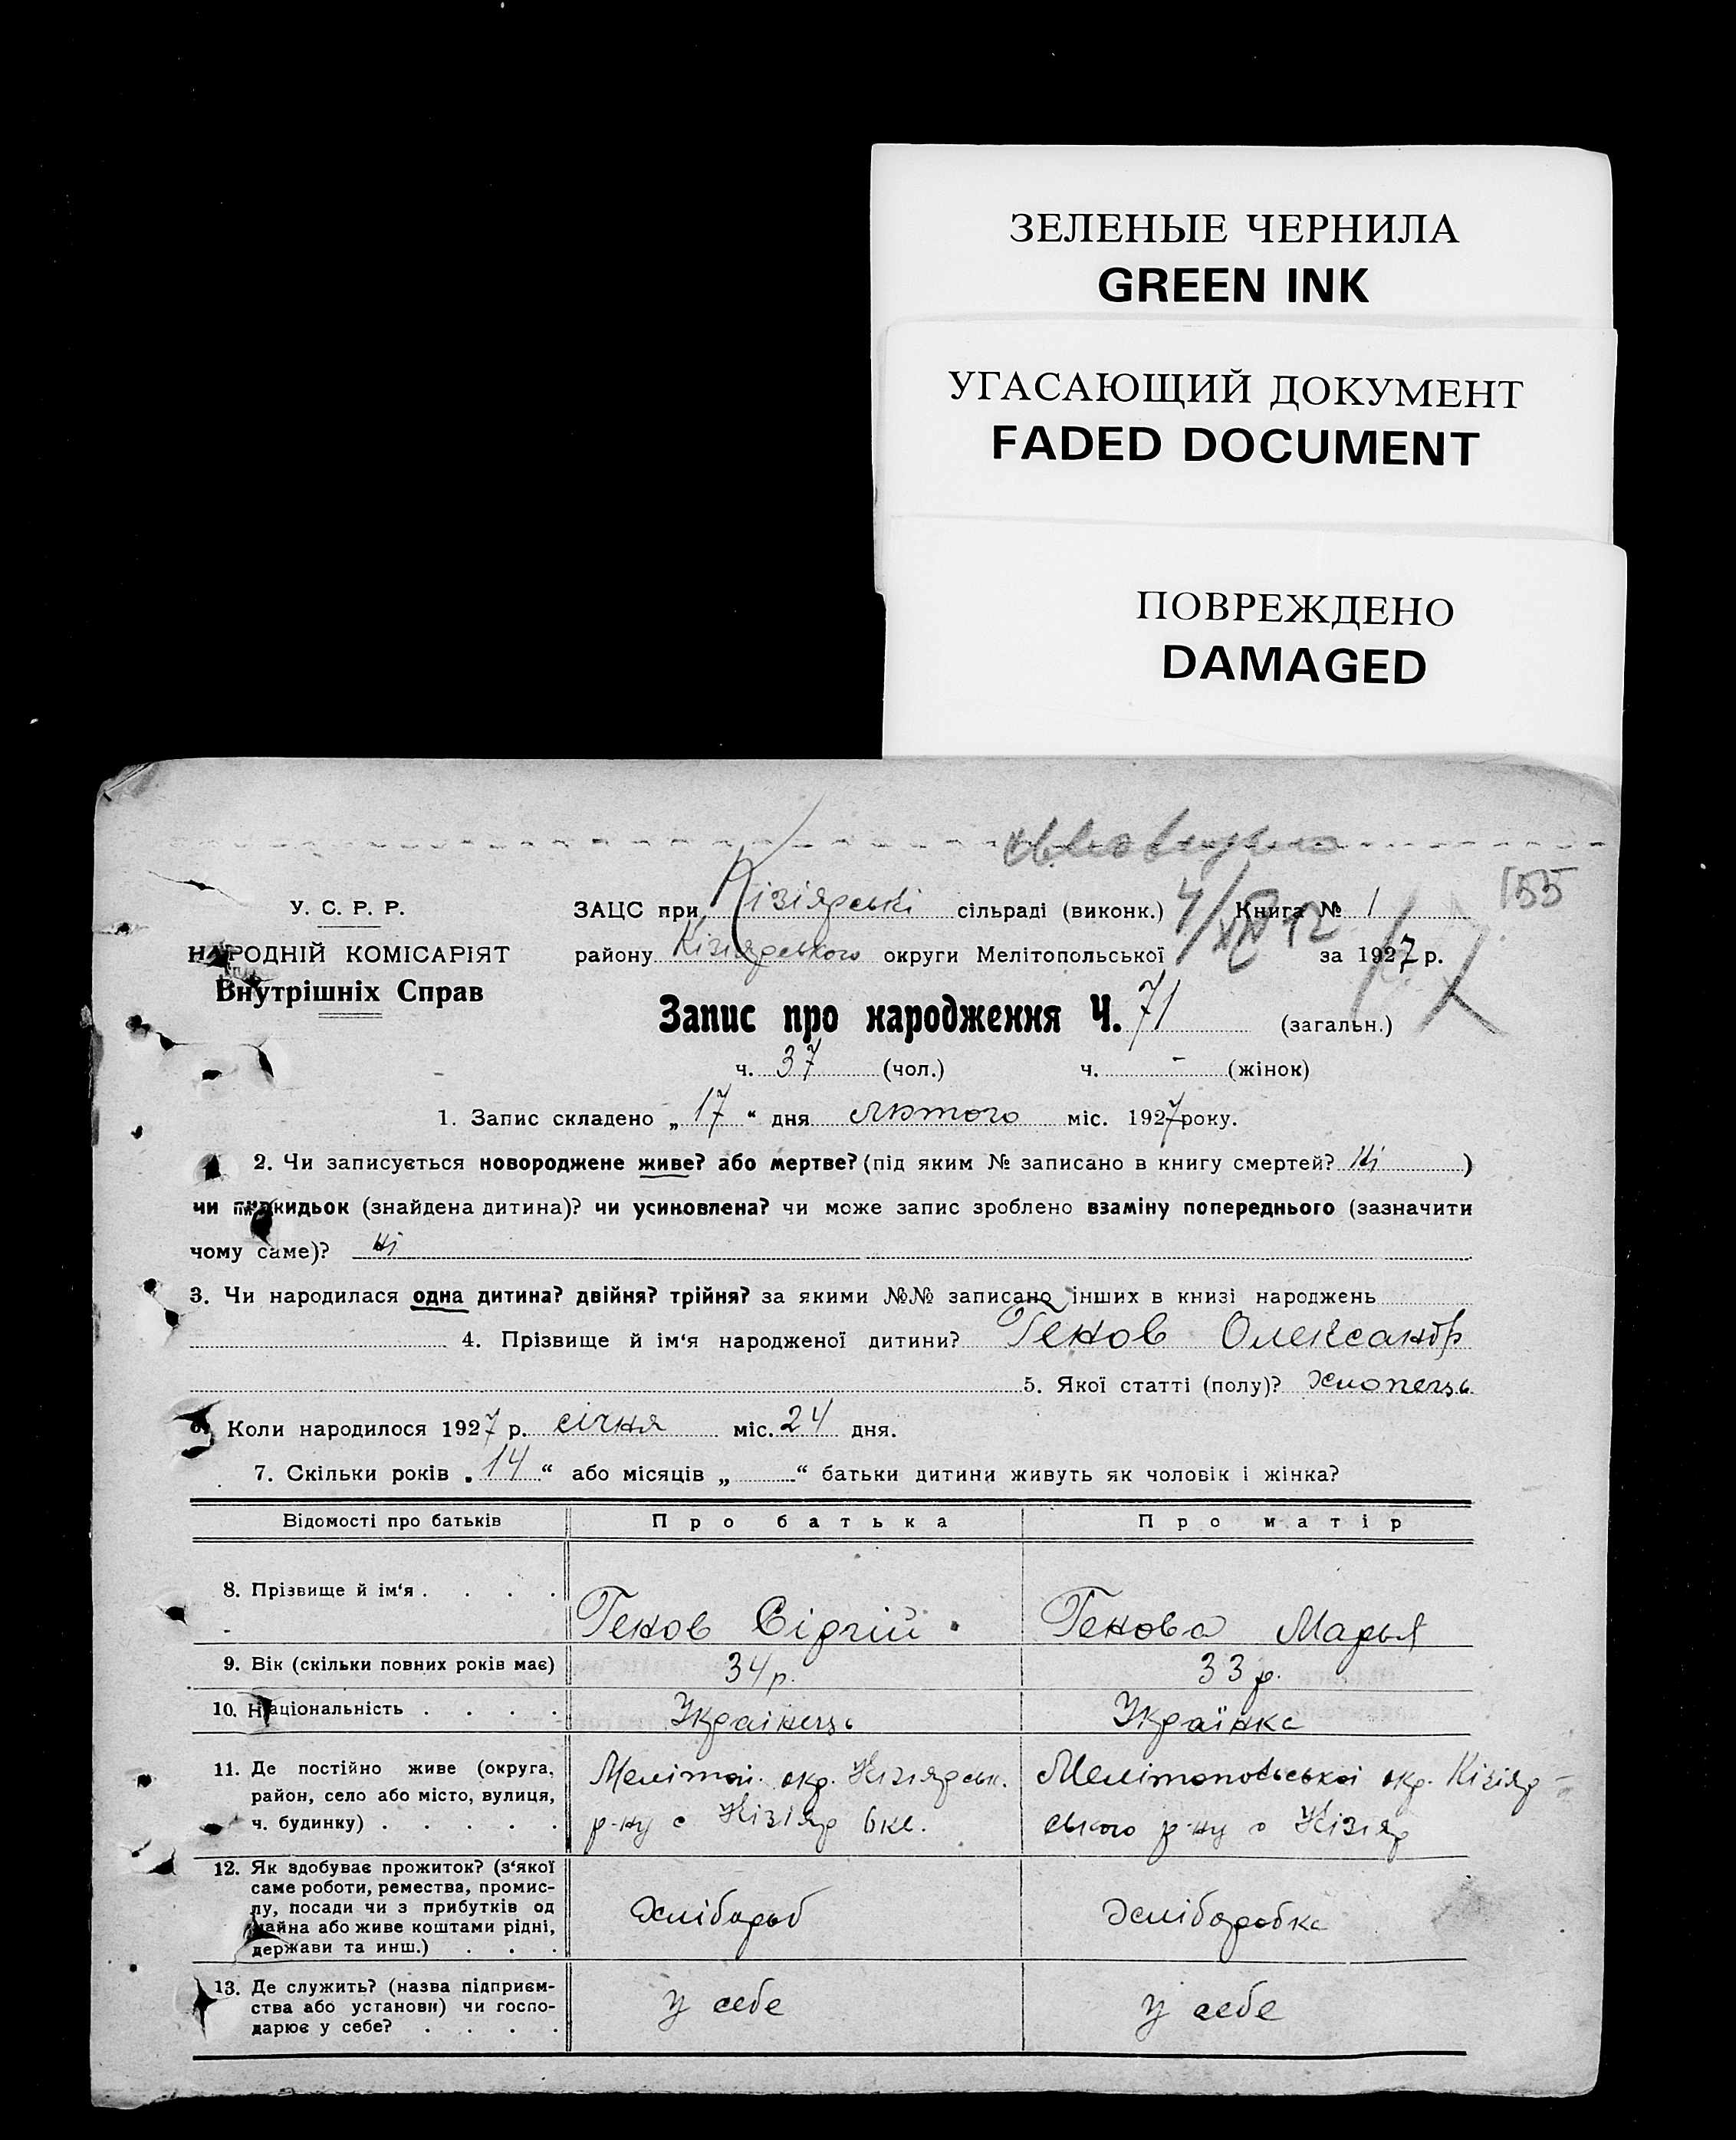 ЗЕЛЕНЫЕ ЧЕРНИЛА
GREEN INK
УГАСАЮЩИЙ ДОКУМЕНТ
FADED DOCUMENT
ПОВРЕЖДЕНО
DAMAGED
155
У. С. Р. Р.
НАРОДНІЙ КОМІСАРІЯТ
Внутрішніх Справ
ЗАЦС при Кізіярські сільраді (виконк.) Книга № 1
району Кізіярського округи Мелітопольської за 1927 р.
Запис про народження Ч. 71 (загальн.)
ч. 37 (чол.) ч. - (жінок)
1. Запис складено „17“ дня лютого міс. 1927 року.
2. Чи записується новороджене живе? або мертве? (під яким № записано в книгу смертей? Ні )
чи підкидьок (знайдена дитина)? чи усиновлена? чи може запис зроблено взаміну попереднього (зазначити
чому саме)? Ні
3. Чи народилася одна дитина? двійня? трійня? за якими №№ записано інших в книзі народжень
4. Прізвище й ім‘я народженої дитини? Генов Олександр
5. Якої статті (полу)? хлопець
6. Коли народилося 1927 р. січня міс. 24 дня.
7. Скільки років „14“ або місяців „ “ батьки дитини живуть як чоловік і жінка?
Відомості про батьків Про батька Про матір
8. Прізвище й ім‘я . . . . Генов Сіргій Генова Марья
9. Вік (скільки повних років має) 34 р. 33 р.
10. Національність . . . . Українець Українка
11. Де постійно живе (округа, Меліт. окр. Кізіярськ. Мелітопольської окр. Кізіяр-
район, село або місто, вулиця,
ч. будинку) . . . . . р-ну с Кізіяр ського р-ну с Кізіяр
12. Як здобуває прожиток? (з‘якої
саме роботи, ремества, промис-
лу, посади чи з прибутків од хлібороб хлібаробка
майна або живе коштами рідні,
держави та инш.) . . .
13. Де служить? (назва підприєм-
ства або установи) чи госпо- у себе у себе
дарює у себе? . . . .